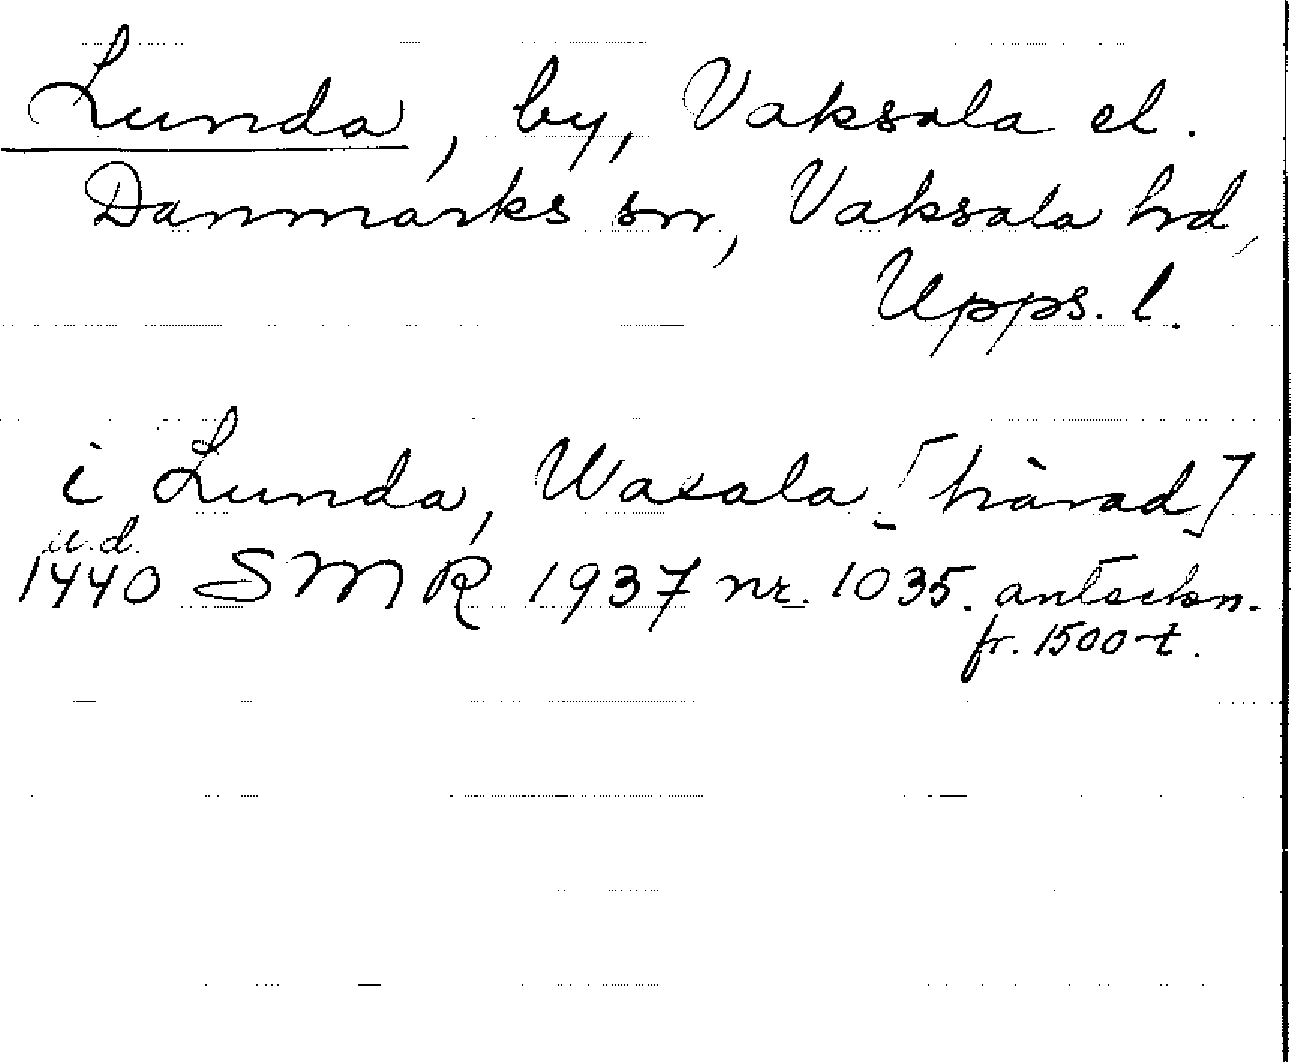 Lunda, by, Vaksala el.
Danmarks sn, Vaksala hd,
Upps. l.
i Lunda, Waxala [härad]
u.d.
1440 SMR 1937 nr. 1035. anteckn.
fr. 1500-t.